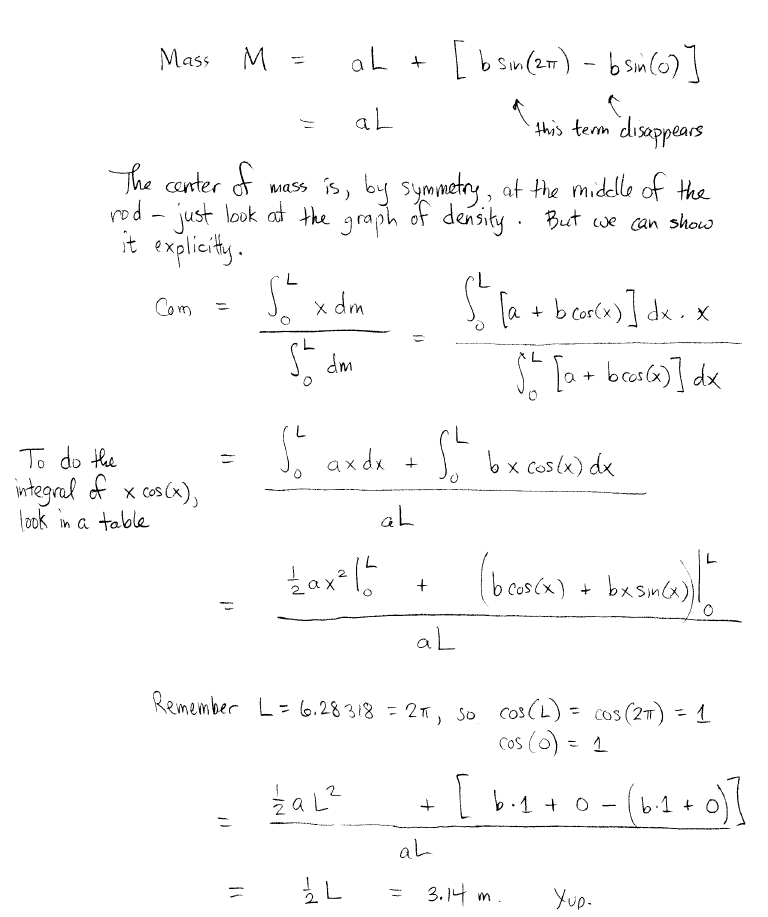 Mass M = aL + [ b sin(2π) – b sin(0) ]
= aL
this term disappears
The center of mass is, by symmetry, at the middle of the
rod – just look at the graph of density. But we can show
it explicitly.
Com = ∫₀ᴸ x dm / ∫₀ᴸ dm = ∫₀ᴸ [a + b cos(x)] dx · x / ∫₀ᴸ [a + b cos(x)] dx
To do the
integral of x cos(x),
look in a table
= ∫₀ᴸ ax dx + ∫₀ᴸ b x cos(x) dx / aL
= ½ax² |₀ᴸ + (b cos(x) + bx sin(x)) |₀ᴸ / aL
Remember L = 6.28318 = 2π, so cos(L) = cos(2π) = 1
cos(0) = 1
= ½ a L² + [ b·1 + 0 – (b·1 + 0) ] / aL
= ½ L = 3.14 m. Yup.